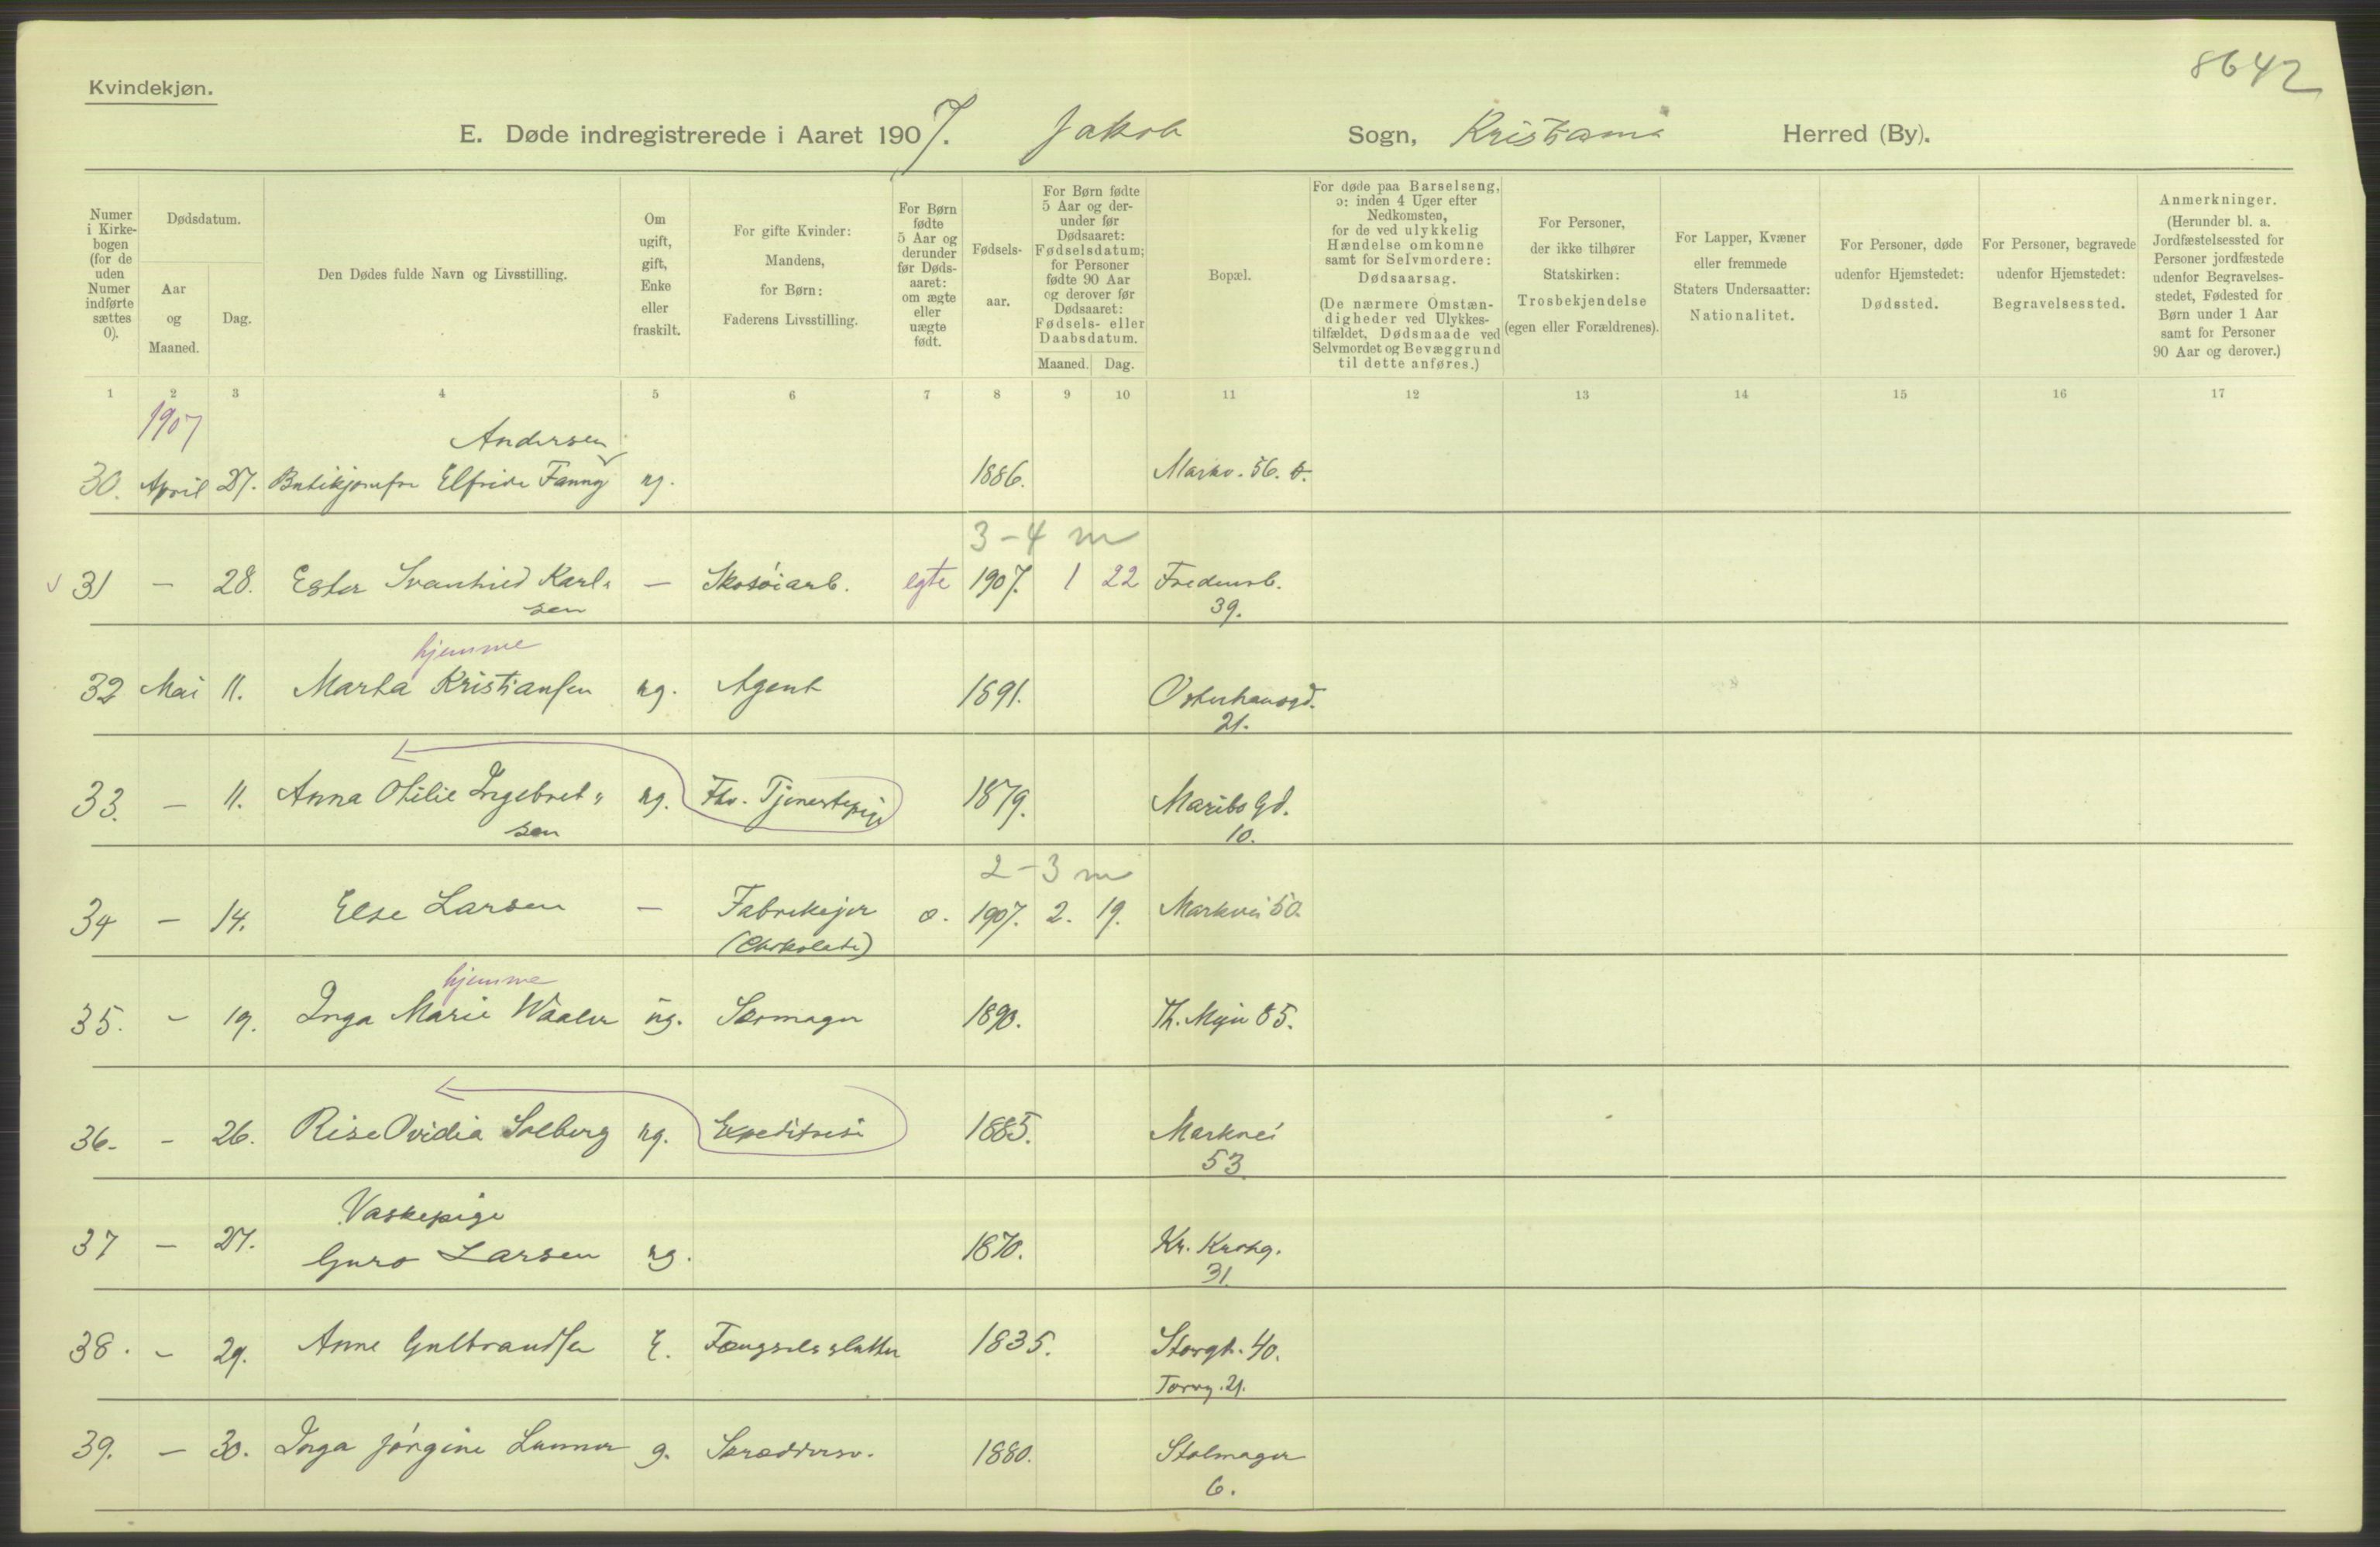 8642
Kvindekjøn.
E. Døde indregistrerede i Aaret 1907. Jakob Sogn, Kristiania Herred (By).
Numer i Kirke-bogen (for de uden Numer indførte sættes 0).
Dødsdatum.
Aar og Maaned.
Dag.
Den Dødes fulde Navn og Livsstilling.
Om ugift, gift, Enke eller fraskilt.
For gifte Kvinder: Mandens, for Børn: Faderens Livsstilling.
For Børn fødte 5 Aar og derunder før Døds-aaret: om ægte eller uægte født.
Fødsels-aar.
For Børn fødte 5 Aar og der-under før Dødsaaret: Fødselsdatum; for Personer fødte 90 Aar og derover før Dødsaaret: Fødsels- eller Daabsdatum.
Maaned. Dag.
Bopæl.
For døde paa Barselseng, ɔ: inden 4 Uger efter Nedkomsten, for de ved ulykkelig Hændelse omkomne samt for Selvmordere: Dødsaarsag.
(De nærmere Omstæn-digheder ved Ulykkes-tilfældet, Dødsmaade ved Selvmordet og Bevæggrund til dette anføres.)
For Personer, der ikke tilhører Statskirken: Trosbekjendelse (egen eller Forældrenes).
For Lapper, Kvæner eller fremmede Staters Undersaatter: Nationalitet.
For Personer, døde udenfor Hjemstedet: Dødssted.
For Personer, begravede udenfor Hjemstedet: Begravelsessted.
Anmerkninger. (Herunder bl. a. Jordfæstelsessted for Personer jordfæstede udenfor Begravelses-stedet, Fødested for Børn under 1 Aar samt for Personer 90 Aar og derover.)
1 2 3 4 5 6 7 8 9 10 11 12 13 14 15 16 17
1907
Andersen
30. April 27. Butikjomfru Elfride Fanny ug. 1886. Markv. 56. b.
3-4 m
31 — 28. Ester Svanhild Karl- — Skotøiarb. egte 1907. 1 22 Fredensb.
sen 39.
hjemme
32 Mai 11. Marta Kristiansen ug. Agent 1891. Osterhausgd.
21.
33. — 11. Anna Otilie Ingebret- ug. Fhv. Tjenestepige 1879. Maribogd.
sen 10.
2-3 m
34 — 14. Else Larsen — Fabrikeier o. 1907. 2. 19. Markvei 50.
(Chokolade)
hjemme
35. — 19. Inga Marie Waaler ug. Skomager 1890. Th. Myer 85.
36. — 26. Rise Ovidia Solberg ug. Expeditrise 1885. Markvei
53.
Vaskepige
37 — 27. Guro Larsen ug. 1870. Kr. Krohg.
31.
38. — 29. Anne Gulbrandsen E. Fængselsslutter 1835. Storgt. 40.
Torvg. 21.
39. — 30. Inga Jørgine Lunner g. Skræddersv. 1880. Stolmager
6.